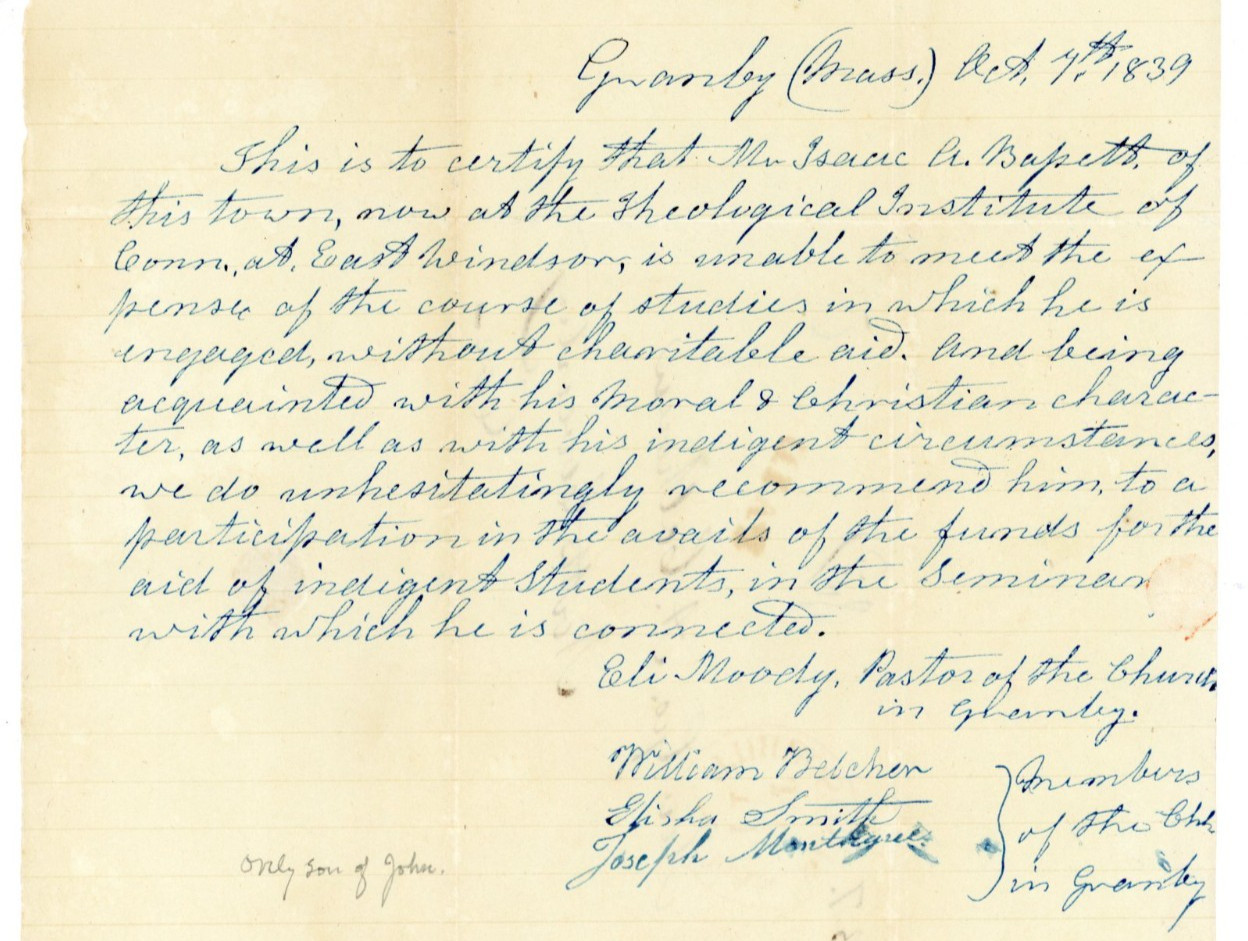 Granby (Mass.) Oct. 7th. 1839
This is to certify that Mr Isaac A. Bassett, of
this town, now at the Theological Institute of
Conn., at East Windsor, is unable to meet the ex
pense of the course of studies in which he is
engaged, without charitable aid. And being
acquainted with his moral & Christian charac-
ter, as well as with his indigent circumstances,
we do unhesitatingly recommend him, to a
participation in the avails of the funds for the
aid of indigent Students, in the Seminar
with which he is connected.
Eli Moody, Pastor of the Church
in Granby.
William Belcher
Elisha Smith
Joseph Montague
Members
of the Chh
in Granby
Only son of John.